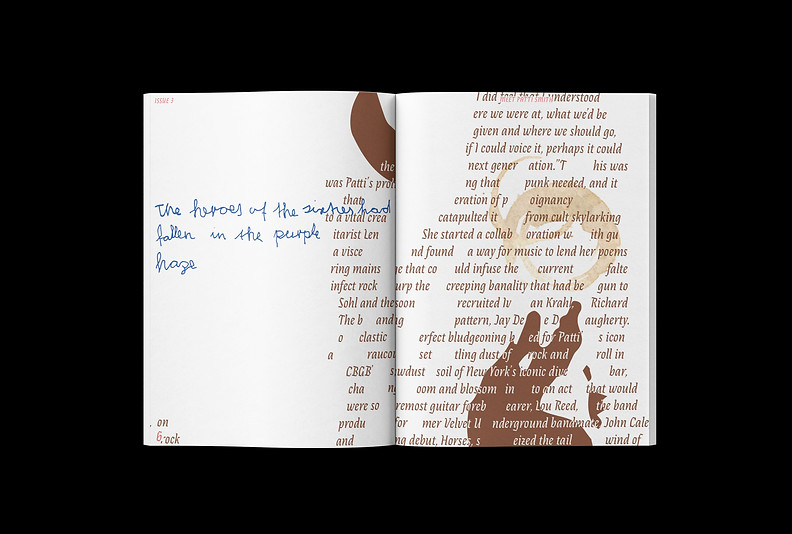 ISSUE 3
The heroes of the sixties had
fallen in the purple
haze
. on
6
rock
MEET PATTI SMITH
I did feel that I understood
ere we were at, what we'd be
given and where we should go,
if I could voice it, perhaps it could
the next gener ation."T his was
was Patti's ng that punk needed, and it
that eration of p oignancy
to a vital crea catapulted it from cult skylarking
itarist Len She started a collab oration w ith gu
a visce nd found a way for music to lend her poems
ring mains e that co uld infuse the current falte
infect rock urp the creeping banality that had be gun to
Sohl and the soon recruited Iv an Kral Richard
The b and ig pattern, Jay De e D augherty.
o clastic erfect bludgeoning b ed for Patti' s icon
a raucou set tling dust of rock and roll in
CBGB' sawdust soil of New York's iconic dive bar,
cha ng oom and blossom in to an act that would
were so remost guitar foreb earer, Lou Reed, the band
produ for mer Velvet U nderground bandmate John Cale
and ng debut, Horses, s eized the tail wind of